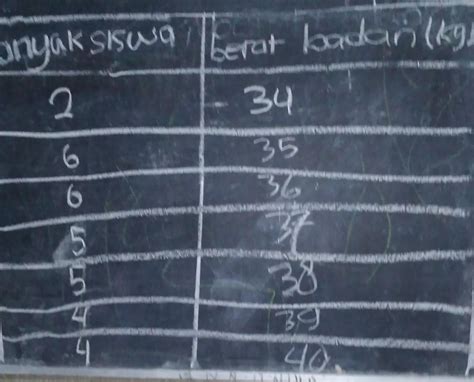 anyak siswa berat badan (kg)
2 34
6 35
6 36
5 37
5 38
4 39
4 40